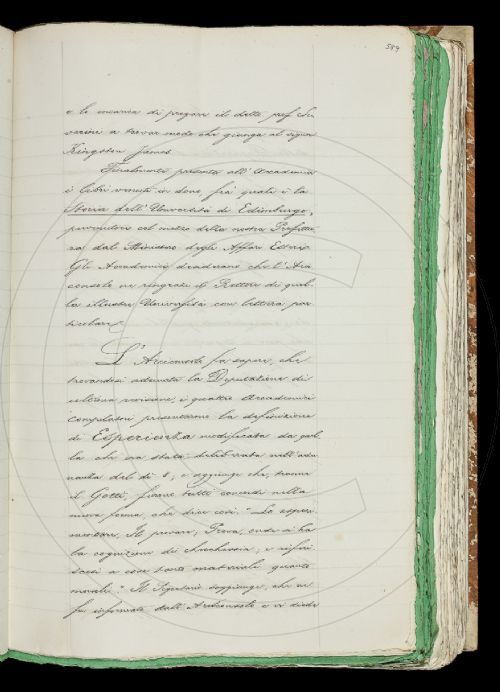 589
e le incarica di pregare il detto prof.
a trovar modo che giunga al signor
Kingston James.
Finalmente presenta all'Accademia
i libri venuti in dono, fra' quali è la
Storia dell'Università di Edimburgo,
pervenutole col mezzo della nostra Prefettu-
ra dal Ministero degli Affari Esteri.
Gli Accademici desiderano che l'Arci-
consolo ne ringrazi il Rettore di quel-
la illustre Università con lettera par-
ticolare.
L'Arciconsolo fa sapere, che
trovandosi adunata la Deputazione di
ultima revisione, i quattro Accademici
compilatori presentarono la definizione
di Esperienza modificata da quel-
la che era stata deliberata nell'adu-
nanza del dì 8, e aggiunge che, tranne
il Gotti, furono tutti concordi nella
nuova forma, che dice così: "Lo esperi-
mentare, Il provare; Prova, onde si ha
la cognizione di checchessia; e riferi-
scesi a cose tanto materiali quanto
morali." Il Segretario soggiunge, che ne
fu informato dall'Arciconsolo e vi diede